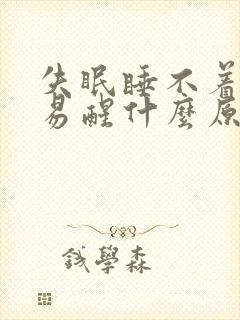 失眠睡不着
易醒什麼原
鍼學森